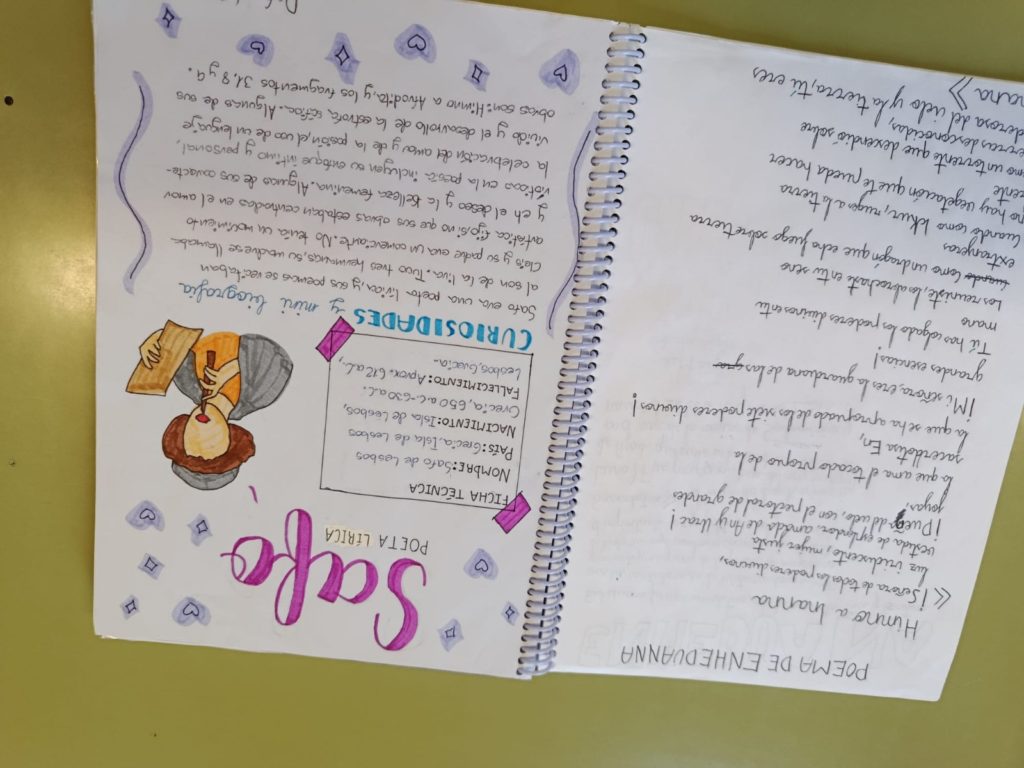 POEMA DE ENHEDUANNA
Himno a Inanna
<< ¡Señora de todos los poderes divinos,
luz iridiscente, mujer justa
vestida de esplendor, amada de An y Urac!
¡Dueña del cielo, con el pectoral de grandes
joyas!
la que ama el tocado propio de la
sacerdotisa En,
la que se ha apropiado de los siete poderes divinos!
¡Mi señora, eres la guardiana de las gran
grandes esencias!
Tú has colgado los poderes divinos en tu
mano
Los reuniste, los abrochaste en tu seno
cuando como un dragón que echa fuego sobre tierra
extranjeras
Cuando como Ishkur, ruges a la tierra
no hay vegetación que te pueda hacer
como un torrente que descendió sobre
tierras desconocidas,
del cielo y la tierra, tú eres
Safo
POETA LÍRICA
FICHA TÉCNICA
NOMBRE: Safo de Lesbos
PAÍS: Grecia. Isla de Lesbos
NACIMIENTO: Isla de Lesbos,
Grecia, 650 a.-630 a.
FALLECIMIENTO: Aprox. 612 a.,
Lesbos, Grecia.
CURIOSIDADES y mini biografía
Safo era una poeta lírica y sus poemas se recitaban
al son de la lira. Tuvo tres hermanos, su madre se llamaba
Cleis y su padre era un comerciante. No tenía un movimiento
artístico fijo, si no que sus obras estaban centradas en el amor
y en el deseo y la belleza femenina. Algunas de sus caracte-
rísticas en la poesía incluyen su enfoque íntimo y personal,
la celebración del amor y de la pasión, el uso de un lenguaje
vívido y el desarrollo de la estrofa sáfica. Algunas de sus
obras son: Himno a Afrodita, y los fragmentos 31, 8 y 9.